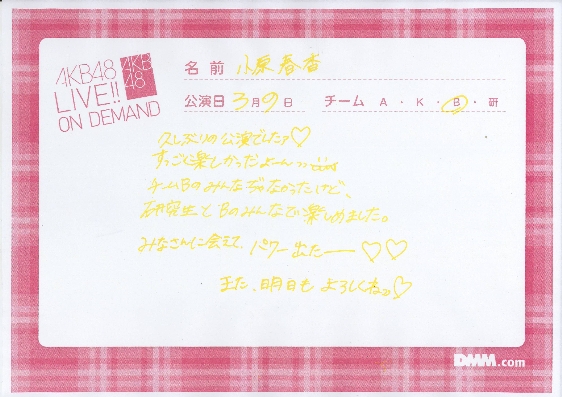 AKB48
LIVE!!
ON DEMAND
AKB
48
名前 小原春香
公演日 3月9日 チーム A・K・B・研
久しぶりの公演でしたァ♡
すっごく楽しかったよーん
チームBのみんなぢゃなかったけど、
研究生とBのみんなで楽しめました。
みなさんに会えて、パワー出たー♡♡
また、明日もよろしくね。♡
DMM.com